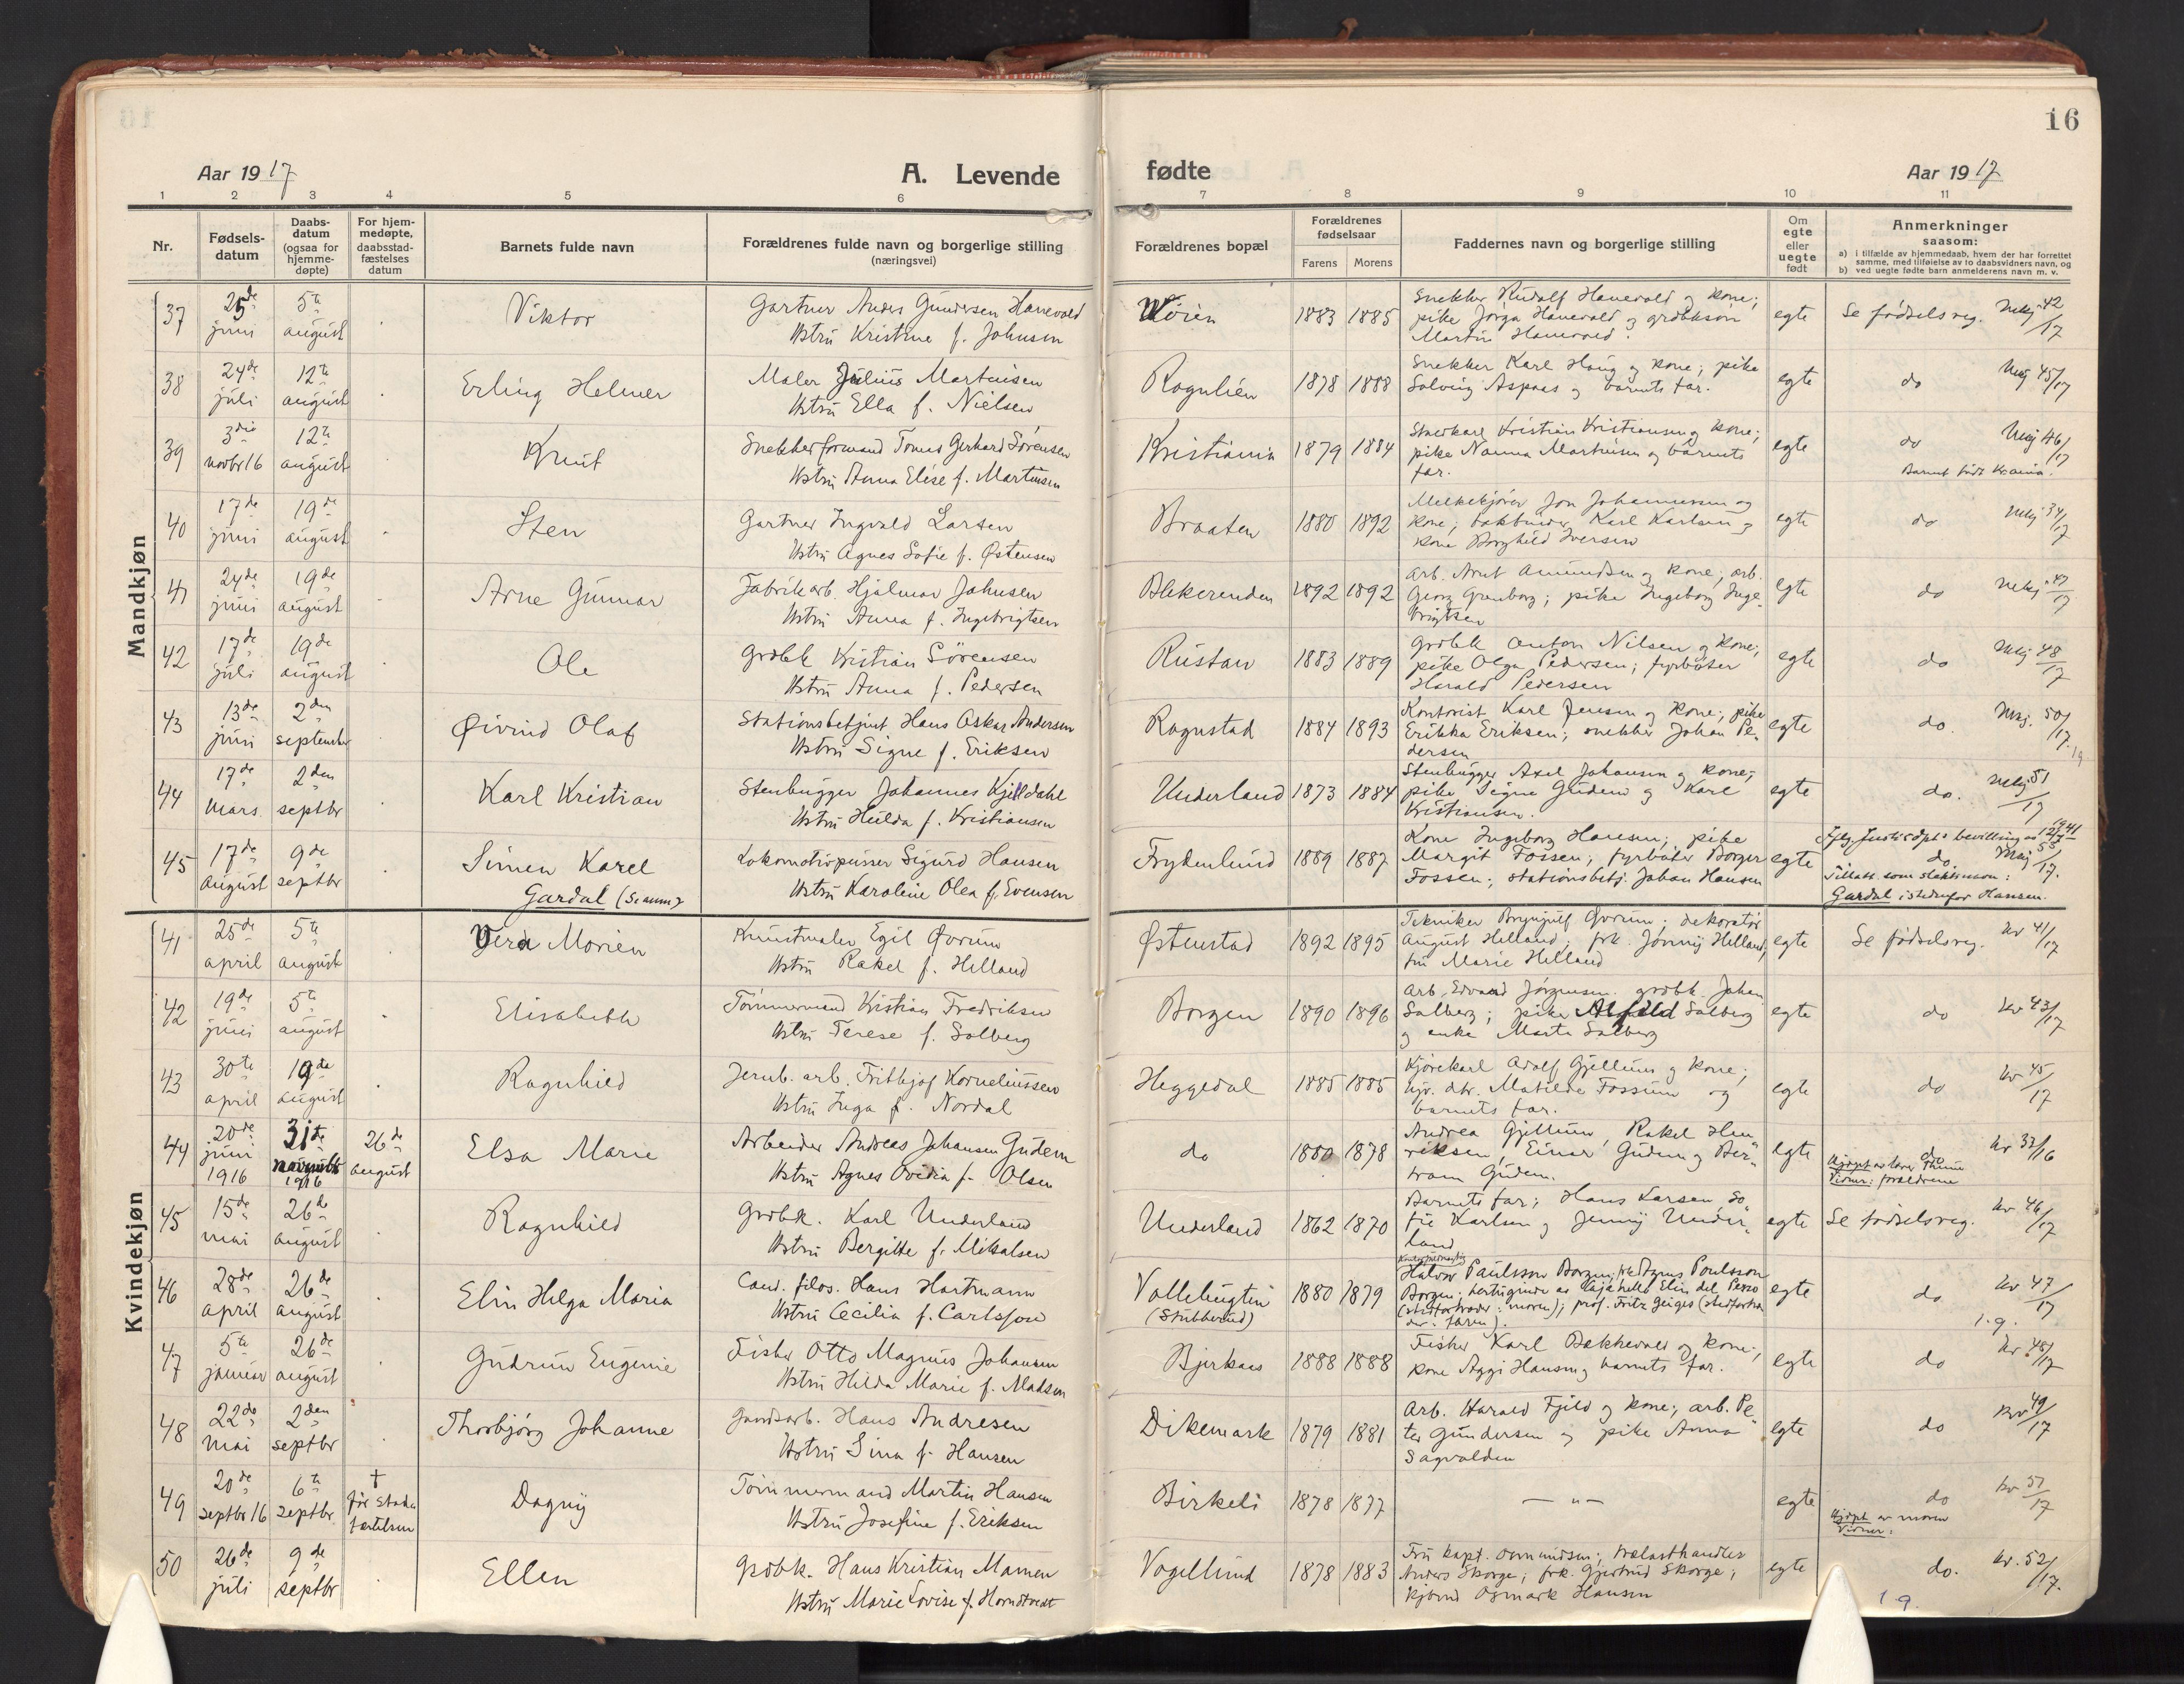 16
Aar 1917
A. Levende
fødte
Aar 1917
1 2 3 4 5 6 7 8 9 10 11
Nr.
Fødsels-
datum
Daabs-
datum
(ogsaa for
hjemme-
døpte)
For hjem-
medøpte,
daabsstad-
fæstelses
datum
Barnets fulde navn
Forældrenes fulde navn og borgerlige stilling
(næringsvei)
Forældrenes bopæl
Forældrenes
fødselsaar
Farens Morens
Faddernes navn og borgerlige stilling
Om
egte
eller
uegte
født
Anmerkninger
saasom:
a) i tilfælde av hjemmedaab, hvem der har forrettet
samme, med tilføielse av to daabsvidners navn, og
b) ved uegte fødte barn anmelderens navn m. v.
Mandkjøn
37
25de
juni
5te
august
Viktor
Gartner Anders Gundersen Hanevold
Hstru Kristine f. Johnsen
1883 1885
Snekker Rudolf Hanevold og kone;
pike Jørga Hanevold og grdbksøn
Martin Hanevold.
egte
Se fødselsreg. 42/17
38
24de
juli
12te
august
Erling Helmer
Maler Julius Martinsen
Hstru Ella f. Nielsen
Rognlien
1878 1888
Snekker Karl Haug og kone; pike
Solveig Aspaas og barnets far.
egte
do 45/17
39
3die
novbr 16
12te
august
Knut
Snekkerformand Tomas Gerhard Sørensen
Hstru Anna Elise f. Martinsen
Kristiania
1879 1884
Kristian Kristiansen og kone;
pike Nanna Martinsen og barnets
far.
egte
do 46/17
Barnet født Kr.ania.
40
17de
juni
19de
august
Sten
Gartner Ingvald Larsen
Hstru Agnes Sofie f. Østensen
Braaten
1880 1892
Melkekjører Jon Johannessen og
kone; Karl Karlsen og
kone Borghild Iversen
egte
do 34/17
41
24de
juni
19de
august
Arne Gunnar
Fabrikarb. Hjalmar Johnsen
Hstru Anna f. Ingebrigtsen
Blekerenden
1892 1892
Arb. Arnt Amundsen og kone; arb.
Georg Grenborg; pike Ingeborg Inge-
brigtsen
egte
do 47/17
42
17de
juli
19de
august
Ole
Grdbk Kristian Sørensen
Hstru Anna f. Pedersen
Rustan
1883 1889
Grdbk Anton Nilsen og kone;
pike Olga Pedersen; fyrbøter
Harald Pedersen
egte
do 48/17
43
13de
juni
2den
september
Øivind Olaf
Stationsbetjent Hans Oskar Andersen
Hstru Signe f. Eriksen
Rognstad
1884 1893
Kontorist Karl Jensen og kone; pike
Erikka Eriksen; snekker Johan Pe-
dersen
egte
do. 50/17.
44
17de
mars
2den
septbr
Karl Kristian
Stenhugger Johannes Kjelldahl
Hstru Hulda f. Kristiansen
Underland
1873 1884
Stenhugger Axel Johansen og kone;
pike Signe Gudem og Karl
Kristiansen.
egte
do. 51/17
45
17de
august
9de
septbr
Simen Karel
Gardal
Lokomotivpusser Sigurd Hansen
Hstru Karoline Olea f. Evensen
Frydenlund
1889 1887
Kone Ingeborg Hansen; pike
Margit Fossen; fyrbøter Borger
Fossen; stationsbetj. Johan Hansen
egte
Iflg. Justisdpts bevilling av 12/7 1941
do. 53/17.
Tillatt som slektsnavn:
Gardal istedenfor Hansen.
Kvindekjøn
41
25de
april
5te
august
Vera Morien
Kunstmaler Egil Qvrum
Hstru Rakel f. Helland
Østenstad
1892 1895
Tekniker Brynjulf Qvrum; dekoratør
August Helland; frk. Jenny Helland,
fru Marie Helland
egte
Se fødselsreg. kv 41/17
42
19de
juni
5te
august
Elisabeth
Tømmermand Kristian Fredriksen
Hstru Terese f. Solberg
Borgen
1890 1896
Arb. Edvard Jørgensen. grdbk. Johan
Solberg; pike Alfild Solberg
og enke Marte Solberg
egte
do kv 43/17
43
30te
april
19de
august
Ragnhild
Jernb. arb. Frithjof Korneliussen
Hstru Inga f. Nordal
Heggedal
1885 1885
Kjørekarl Adolf Gjellum og kone;
gjr. dtr. Matilde Fossum og
barnets far.
egte
do kv 45/17
44
20de
juni
1916
31te
1916
26de
august
Elsa Marie
Arbeider Andreas Johansen Gudem
Hstru Agnes Ovidia f. Olsen
do
1880 1878
Andrea Gjellum, Rakel Hen-
riksen, Einar Gudem og Ber-
tram Gudem.
egte
do kv 37/16
Hjdpt av lærer Thune
Vidner: forældrene
45
15de
mai
26de
august
Ragnhild
Grdbk. Karl Underland
Hstru Bergitte f. Mikalsen
Underland
1862 1870
Barnets far; Hans Larsen, So-
fie Karlsen og Jenny Under-
land
egte
Se fødselsreg. kv. 46/17
46
28de
april
26de
august
Elin Helga Maria
Cand. filos. Hans Hartmann
Hstru Cecilia f. Carlsson
(Stubberud)
1880 1879
Halvor Paulsson Borgen, frk Agnes Poulsson
Borgen; Elin del
(stedfortræder: moren); prof. Fritz Geiges (stedfortræ
der: faren).
egte
do kv 47/17
47
5te
januar
26de
august
Gudrun Eugenie
Fisker Otto Magnus Johansen
Hstru Hilda Marie f. Madsen
Bjerkaas
1888 1888
Fisker Karl Bakkevold og kone;
kone Aggi Hansen og barnets far.
egte
1.9.
do kv 48/17
48
22de
mai
2den
septbr
Thorbjørg Johanne
Gaardsarb. Hans Andresen
Hstru Lina f. Hansen
Dikemark
1879 1881
Arb. Harald Fjeld og kone; arb. Pe-
ter Gundersen og pike Anna
Sagvolden
egte
do kv 49/17
49
20de
septbr 16
6te
septbr
†
før stad-
fæstelsen
Dagny
Tømmermand Martin Hansen
Hstru Josefine f. Eriksen
Birkeli
1878 1877
— " —
egte
do kv 51/17
Hjdpt av moren
Vidner:
50
26de
juli
9de
septbr
Ellen
Grdbk. Hans Kristian Mamen
Hstru Marie Lovise f. Horndtvedt
Vogellund
1878 1883
Fru kapt. Osmundsen; trælasthandler
Anders Skorge; frk. Gjertrud Skorge;
Osmark Hansen
egte
do. kv. 52/17.
19.